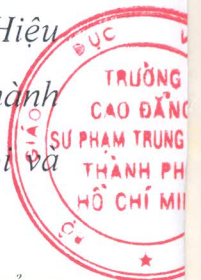 Hiệu
hành
và
DỤC
GIÁO
BỘ
TRƯỜNG
CAO ĐẲNG
SƯ PHẠM TRUNG
THÀNH PH
HỒ CHÍ MI